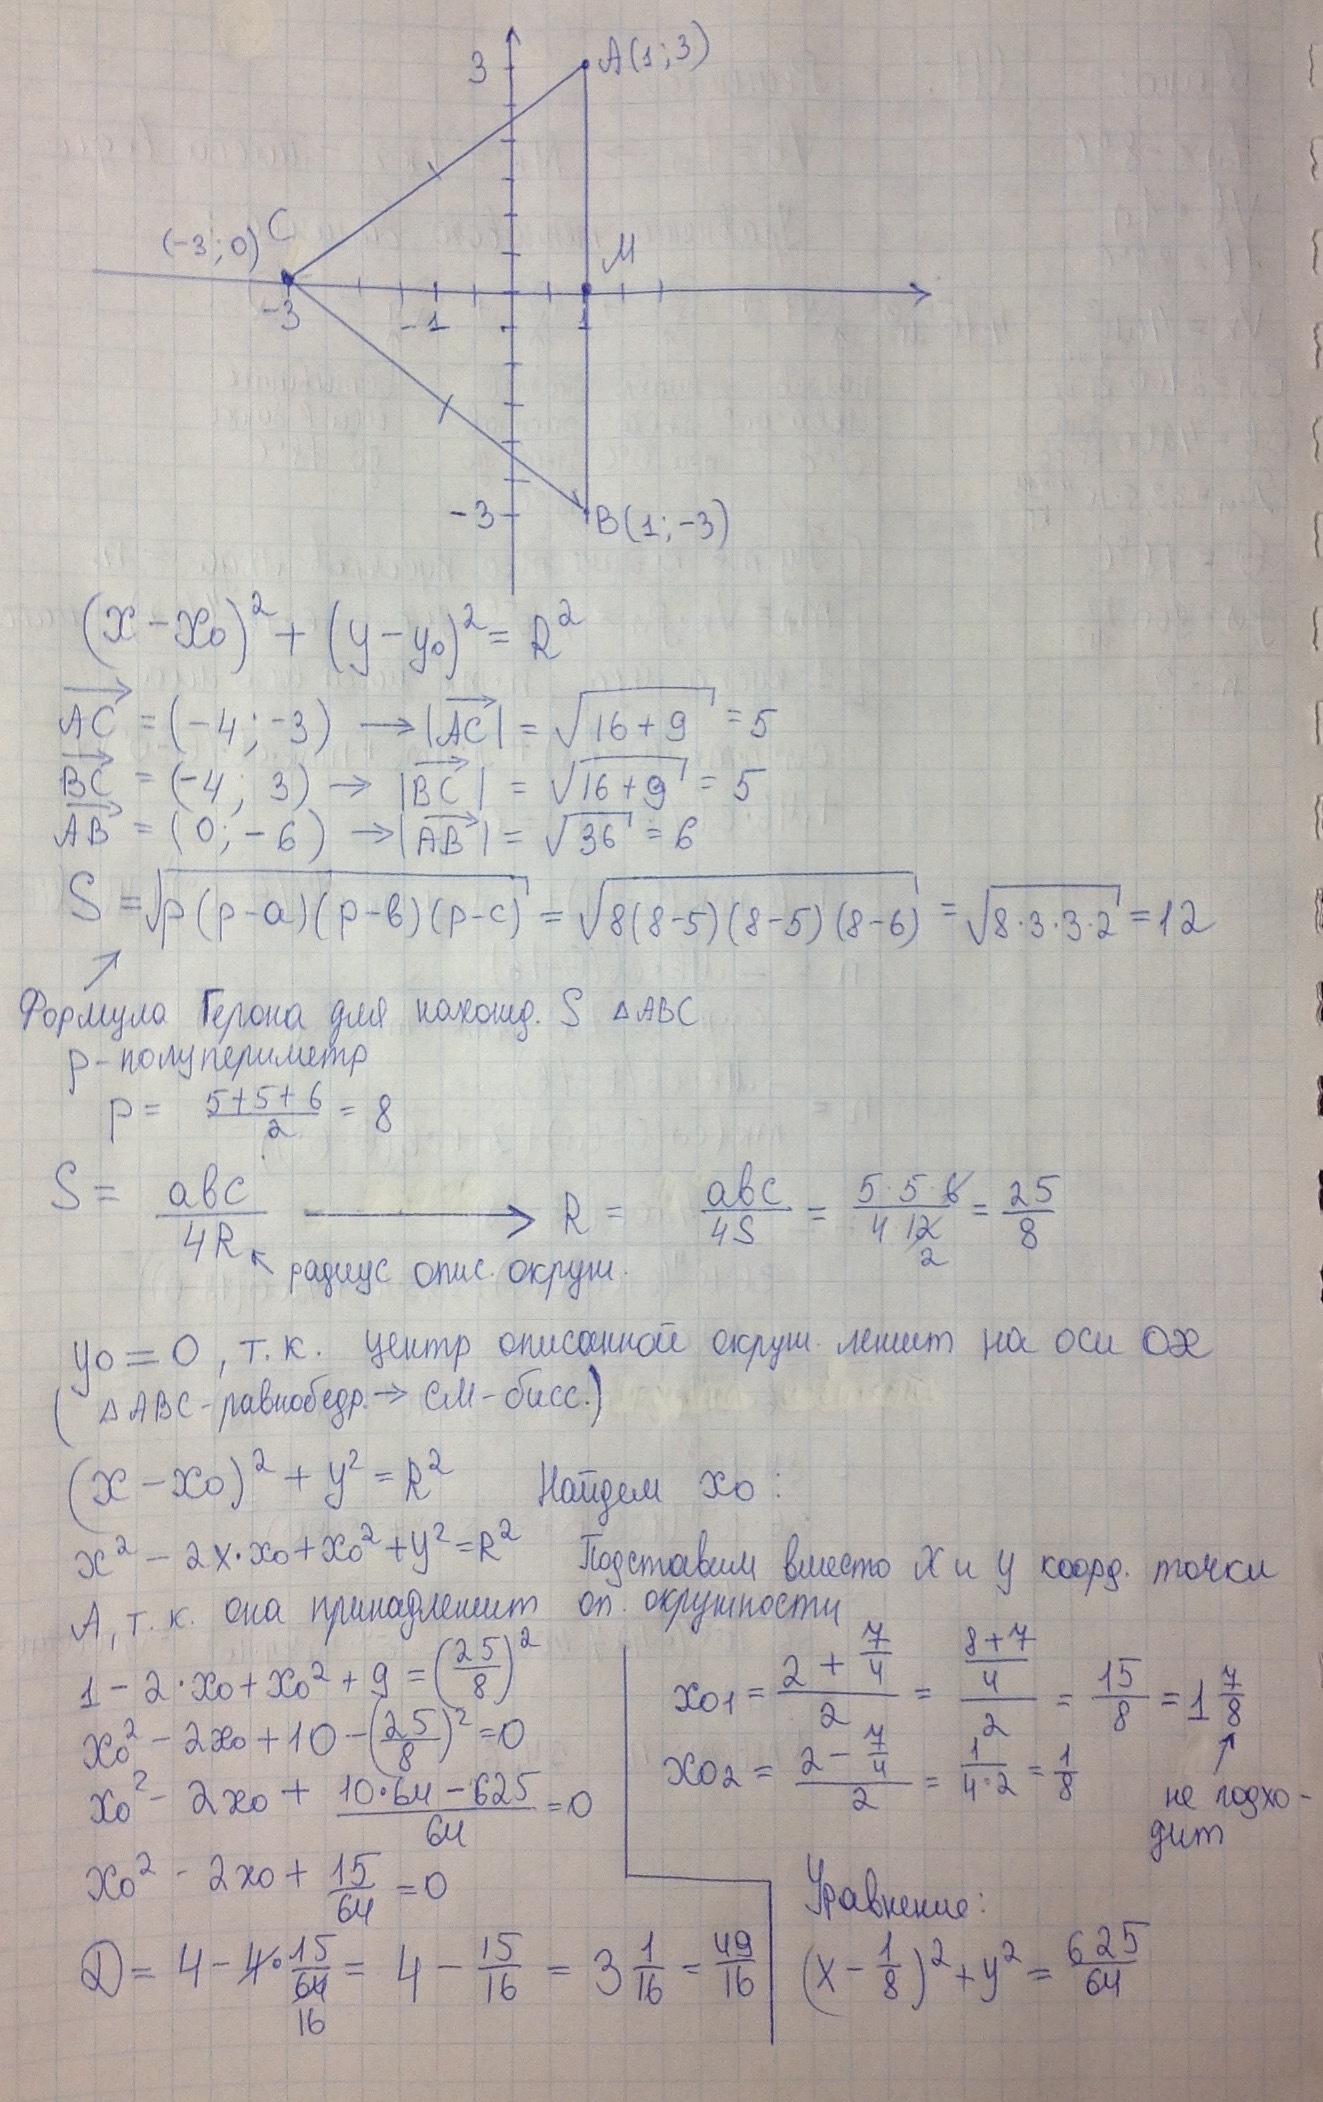 3 A(1; 3)
(-3; 0) C M
-3 -1 1
-3 B(1; -3)
(x - x₀)² + (y - y₀)² = R²
AC = (-4; -3) → |AC| = √(16+9) = 5
BC = (-4; 3) → |BC| = √(16+9) = 5
AB = (0; -6) → |AB| = √36 = 6
S = √(p(p-a)(p-в)(p-c)) = √(8(8-5)(8-5)(8-6)) = √(8·3·3·2) = 12
Формула Герона для нахожд. S △ABC
p - полупериметр
p = (5+5+6)/2 = 8
S = aвc/4R → R = aвc/4S = 5·5·6/4 12 2 = 25/8
радиус опис. окруж.
y₀ = 0, т.к. центр описанной окруж. лежит на оси OX
(△ABC - равнобедр. → CM - бисс.)
(x - x₀)² + y² = R² Найдем x₀:
x² - 2x·x₀ + x₀² + y² = R² Подставим вместо X и y коорд. точки
A, т.к. она принадлежит оп. окружности
1 - 2·x₀ + x₀² + 9 = (25/8)²
x₀² - 2x₀ + 10 - (25/8)² = 0
x₀² - 2x₀ + (10·64 - 625)/64 = 0
x₀² - 2x₀ + 15/64 = 0
D = 4 - 4·15/64 16 = 4 - 15/16 = 3 1/16 = 49/16
x₀₁ = (2 + 7/4)/2 = ((8+7)/4)/2 = 15/8 = 1 7/8
x₀₂ = (2 - 7/4)/2 = 1/(4·2) = 1/8
не подхо-
дит
Уравнение:
(x - 1/8)² + y² = 625/64